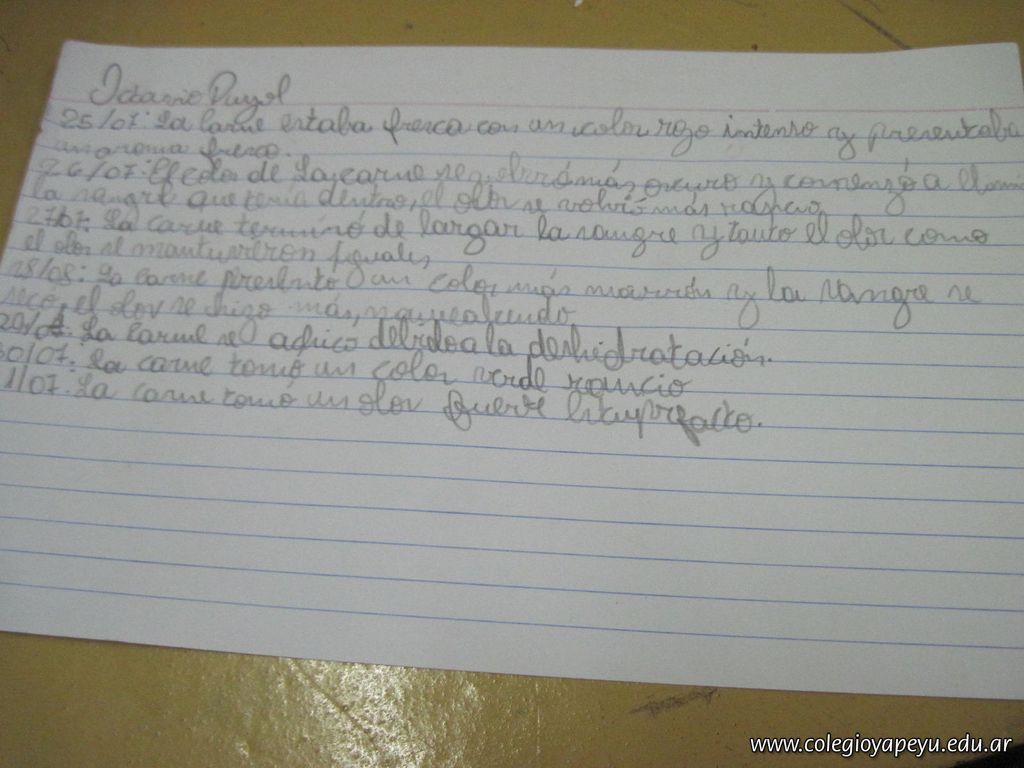 Octavio Puyol
25/07: La carne estaba fresca con un color rojo intenso y presentaba
un aroma fresco.
26/07: El color de la carne se volvió más oscuro y comenzó a
la sangre que tenía dentro, el olor se volvió más rancio
27/07: La carne terminó de largar la sangre y tanto el olor como
el olor se mantuvieron iguales
28/08: La carne presentó un color más marrón y la sangre se
secó, el olor se hizo más
29/07: La carne se achicó debido a la deshidratación.
30/07: La carne tomó un color verde rancio
1/07: La carne tomó un olor fuerte
www.colegioyapeyu.edu.ar